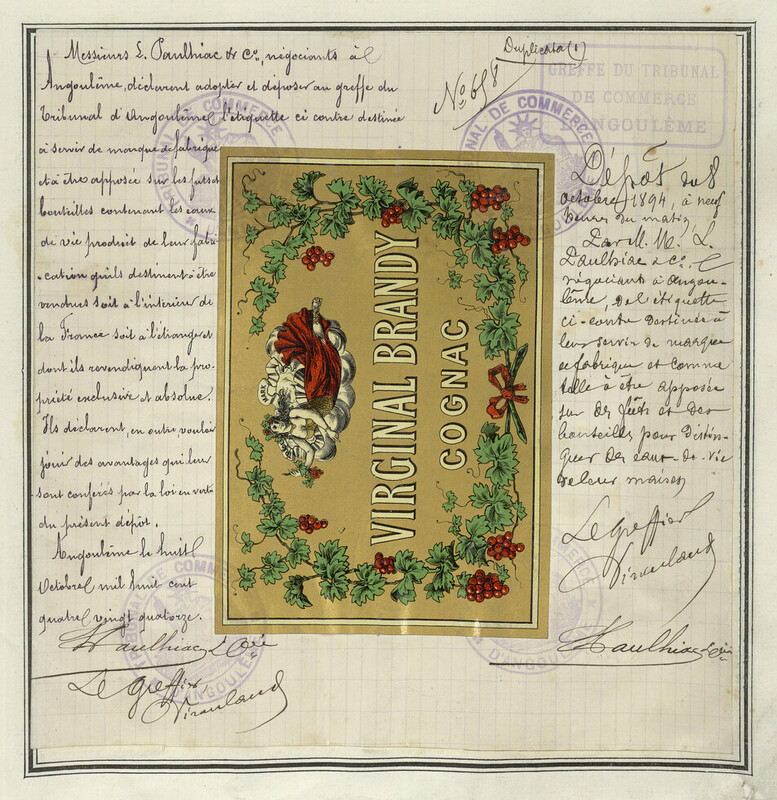 Duplicata (1)
N° 658
GREFFE DU TRIBUNAL
DE COMMERCE
D'ANGOULÊME
Messieurs L. Paulhiac & Co, négociants à
Angoulême, déclarent adopter et déposer au greffe du
Tribunal d'Angoulême l'étiquette ci contre destinée
à servir de marque de fabrique
et à être apposée sur les futs et
bouteilles contenant les eaux
de vie produit de leur fabri
-cation qu'ils destinent à être
vendues soit à l'intérieur de
la France soit à l'étranger et
dont ils revendiquent la pro-
priété exclusive et absolue.
Ils déclarent, en outre, vouloir
jouir des avantages qui leur
sont conférés par la loi en vertu
du présent dépôt.
Angoulême le huit
Octobre mil huit cent
quatre vingt quatorze.
Paulhiac & Cie
Le greffier
VIRGINAL BRANDY
COGNAC
Dépôt du 8
octobre 1894, à neuf
heures du matin
Par M. M. L.
Paulhiac & Co
négociants à Angou-
lême, de l'étiquette
ci-contre destinée à
leur servir de marque
de fabrique et comme
telle à être apposée
sur des fûts et des
bouteilles pour distin-
guer des eaux-de-vie
de leur maison
Le greffier
Paulhiac & Cie
TRIBUNAL DE COMMERCE
D'ANGOULÊME